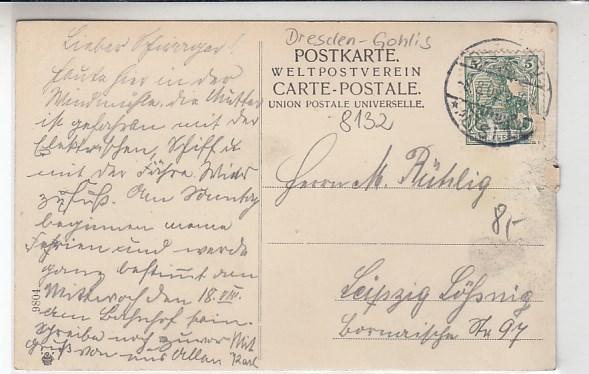 Dresden-Gohlis
POSTKARTE.
WELTPOSTVEREIN
CARTE-POSTALE.
UNION POSTALE UNIVERSELLE.
8132
Lieber Schwager!
Heute hier in der
Windmühle, die Mutter
ist gefahren mit der
Elektrischen, Schiff &
mit der Fähre
zu Fuß. Am Sonntag
beginnen meine
Ferien und werde
ganz bestimmt den
Mittwoch den 18. VIII.
am Bahnhof sein.
Schreibe noch zuvor Mit
Gruß von uns Allen Karl
Herrn M. Rühlig
8,-
Leipzig Lößnig
Bornaische Str 97
9804
5